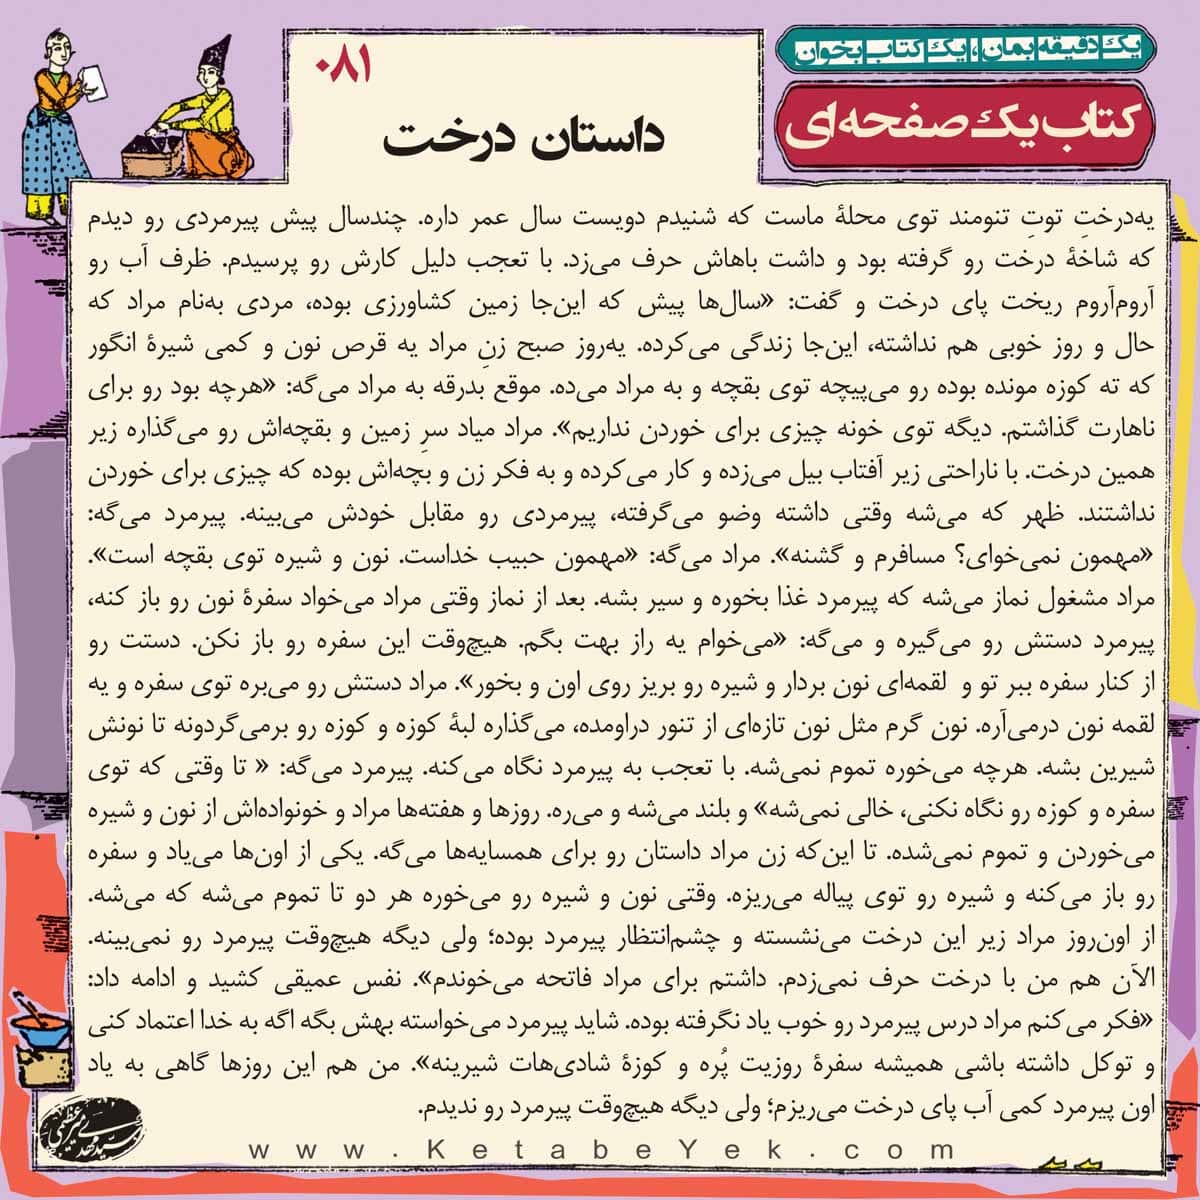 یک دقیقه بمان، یک کتاب بخوان
کتاب یک صفحه‌ای
۰۸۱
داستان درخت
یه‌درختِ توتِ تنومند توی محلهٔ ماست که شنیدم دویست سال عمر داره. چندسال پیش پیرمردی رو دیدم
که شاخهٔ درخت رو گرفته بود و داشت باهاش حرف می‌زد. با تعجب دلیل کارش رو پرسیدم. ظرف آب رو
آروم‌آروم ریخت پای درخت و گفت: «سال‌ها پیش که این‌جا زمین کشاورزی بوده، مردی به‌نام مراد که
حال و روز خوبی هم نداشته، این‌جا زندگی می‌کرده. یه‌روز صبح زنِ مراد یه قرص نون و کمی شیرهٔ انگور
که ته کوزه مونده بوده رو می‌پیچه توی بقچه و به مراد می‌ده. موقع بدرقه به مراد می‌گه: «هرچه بود رو برای
ناهارت گذاشتم. دیگه توی خونه چیزی برای خوردن نداریم». مراد میاد سرِ زمین و بقچه‌اش رو می‌گذاره زیر
همین درخت. با ناراحتی زیر آفتاب بیل می‌زده و کار می‌کرده و به فکر زن و بچه‌اش بوده که چیزی برای خوردن
نداشتند. ظهر که می‌شه وقتی داشته وضو می‌گرفته، پیرمردی رو مقابل خودش می‌بینه. پیرمرد می‌گه:
«مهمون نمی‌خوای؟ مسافرم و گشنه». مراد می‌گه: «مهمون حبیب خداست. نون و شیره توی بقچه است».
مراد مشغول نماز می‌شه که پیرمرد غذا بخوره و سیر بشه. بعد از نماز وقتی مراد می‌خواد سفرهٔ نون رو باز کنه،
پیرمرد دستش رو می‌گیره و می‌گه: «می‌خوام یه راز بهت بگم. هیچ‌وقت این سفره رو باز نکن. دستت رو
از کنار سفره ببر تو و لقمه‌ای نون بردار و شیره رو بریز روی اون و بخور». مراد دستش رو می‌بره توی سفره و یه
لقمه نون درمی‌آره. نون گرم مثل نون تازه‌ای از تنور دراومده، می‌گذاره لبهٔ کوزه و کوزه رو برمی‌گردونه تا نونش
شیرین بشه. هرچه می‌خوره تموم نمی‌شه. با تعجب به پیرمرد نگاه می‌کنه. پیرمرد می‌گه: « تا وقتی که توی
سفره و کوزه رو نگاه نکنی، خالی نمی‌شه» و بلند می‌شه و می‌ره. روزها و هفته‌ها مراد و خونواده‌اش از نون و شیره
می‌خوردن و تموم نمی‌شده. تا این‌که زن مراد داستان رو برای همسایه‌ها می‌گه. یکی از اون‌ها می‌یاد و سفره
رو باز می‌کنه و شیره رو توی پیاله می‌ریزه. وقتی نون و شیره رو می‌خوره هر دو تا تموم می‌شه که می‌شه.
از اون‌روز مراد زیر این درخت می‌نشسته و چشم‌انتظار پیرمرد بوده؛ ولی دیگه هیچ‌وقت پیرمرد رو نمی‌بینه.
الآن هم من با درخت حرف نمی‌زدم. داشتم برای مراد فاتحه می‌خوندم». نفس عمیقی کشید و ادامه داد:
«فکر می‌کنم مراد درس پیرمرد رو خوب یاد نگرفته بوده. شاید پیرمرد می‌خواسته بهش بگه اگه به خدا اعتماد کنی
و توکل داشته باشی همیشه سفرهٔ روزیت پُره و کوزهٔ شادی‌هات شیرینه». من هم این روزها گاهی به یاد
اون پیرمرد کمی آب پای درخت می‌ریزم؛ ولی دیگه هیچ‌وقت پیرمرد رو ندیدم.
www.KetabeYek.com